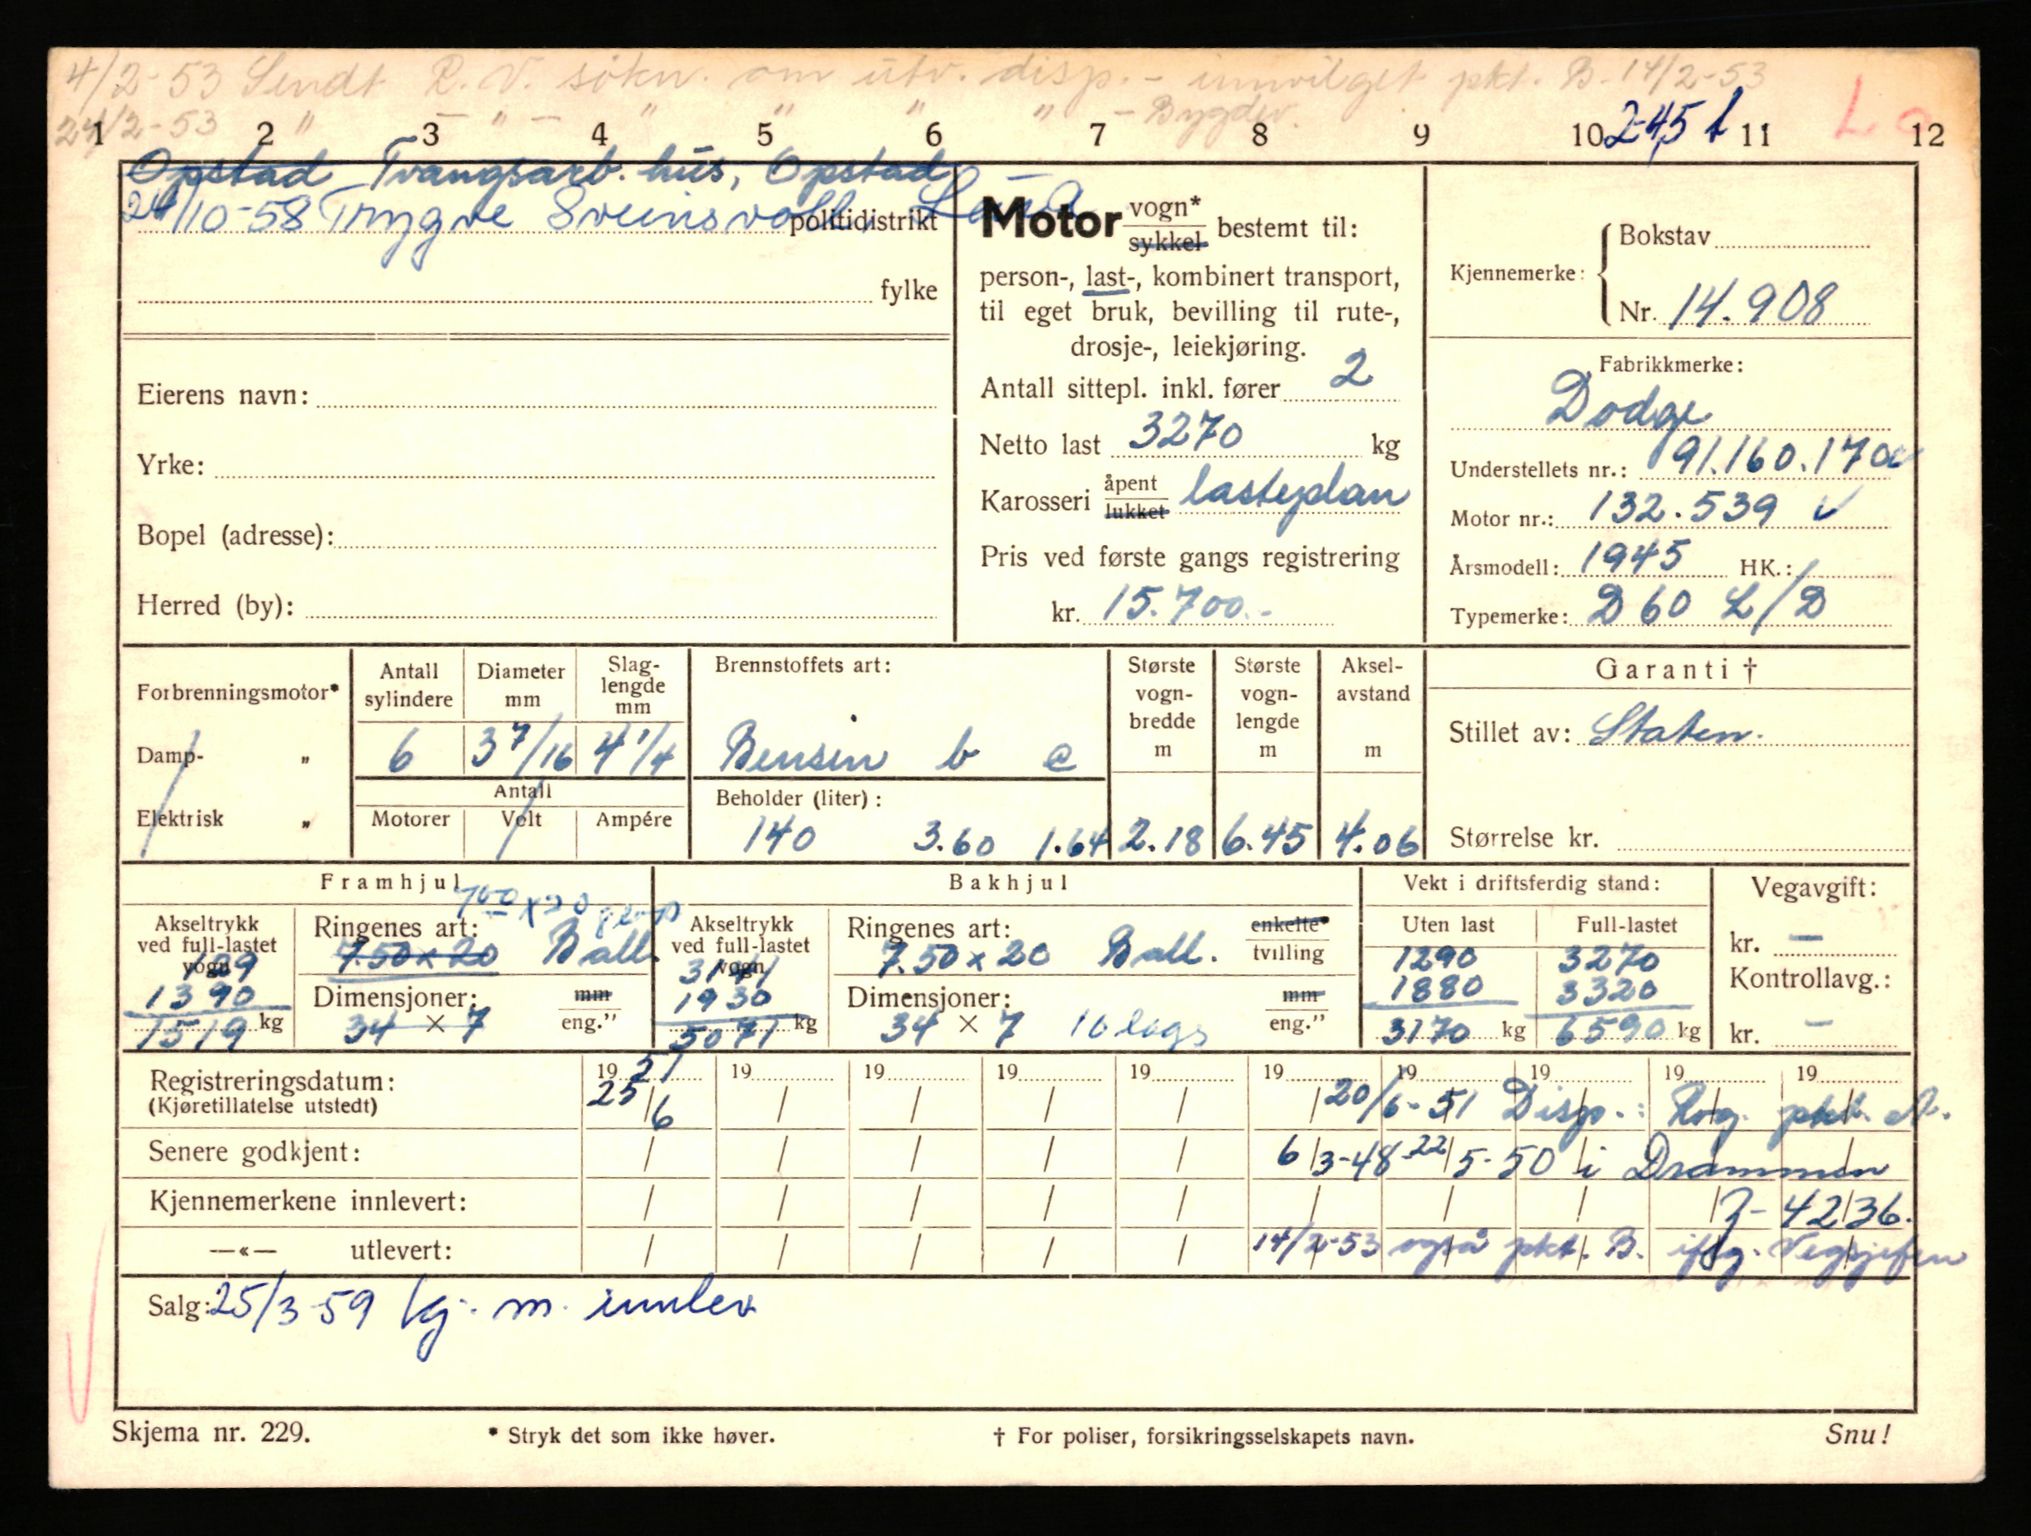 4/2-53 Sendt R. V. søkn. om utv. disp. - innvilget pkt. B. 14/2-53
24/2-53 " — " — " " " " - Bygdev.
1 2 3 4 5 6 7 8 9 10 11 12
245 t
Opstad Tvangsarb. hus, Opstad
24/10-58 Trygve Sveinsvoll,
politidistrikt
fylke
Eierens navn:
Yrke:
Bopel (adresse):
Herred (by):
Motor vogn* sykkel bestemt til:
person-, last-, kombinert transport,
til eget bruk, bevilling til rute-,
drosje-, leiekjøring.
Antall sittepl. inkl. fører 2
Netto last 3270 kg
Karosseri åpent lukket lasteplan
Pris ved første gangs registrering
kr. 15.700.-
Kjennemerke: Bokstav
Nr. 14.908
Fabrikkmerke:
Dodge
Understellets nr.: 91.160.170
Motor nr.: 132.539 ✓
Årsmodell: 1945 HK.: /
Typemerke: D 60 L/D
Forbrenningsmotor*
Damp- "
Elektrisk "
Antall sylindere 6
Diameter mm 3 7/16
Slag-lengde mm 4 1/4
Antall
Motorer Volt Ampére
Brennstoffets art:
Bensin b c
Beholder (liter):
140 3.60 1.64
Største vogn-bredde m 2.18
Største vogn-lengde m 6.45
Aksel-avstand m 4.06
Garanti †
Stillet av: Staten.
Størrelse kr.
Framhjul
Akseltrykk ved full-lastet vogn
129
1390
1519 kg
Ringenes art:
7.50 x 20 Ball.
Dimensjoner: mm
34 × 7 eng."
Bakhjul
Akseltrykk ved full-lastet vogn
3141
1930
5071 kg
Ringenes art: enkelte*
7.50 x 20 Ball. tvilling
Dimensjoner: mm
34 × 7 10 lags eng."
Vekt i driftsferdig stand:
Uten last Full-lastet
1290 3270
1880 3320
3170 kg 6590 kg
Vegavgift:
kr. —
Kontrollavg.:
kr. —
Registreringsdatum: 19 51 19 19 19 19 19 19 19 19 19
(Kjøretillatelse utstedt) 25/6 20/6-51 Disp.: Rog. pkt. A.
Senere godkjent: 6/3-48 22/5-50 i Drammen
Kjennemerkene innlevert: Z-4236.
—«— utlevert: 14/2-53 også pkt. B. iflg. Vegsjefen
Salg: 25/3-59 kj. m. innlev
Skjema nr. 229. * Stryk det som ikke høver. † For poliser, forsikringsselskapets navn. Snu!